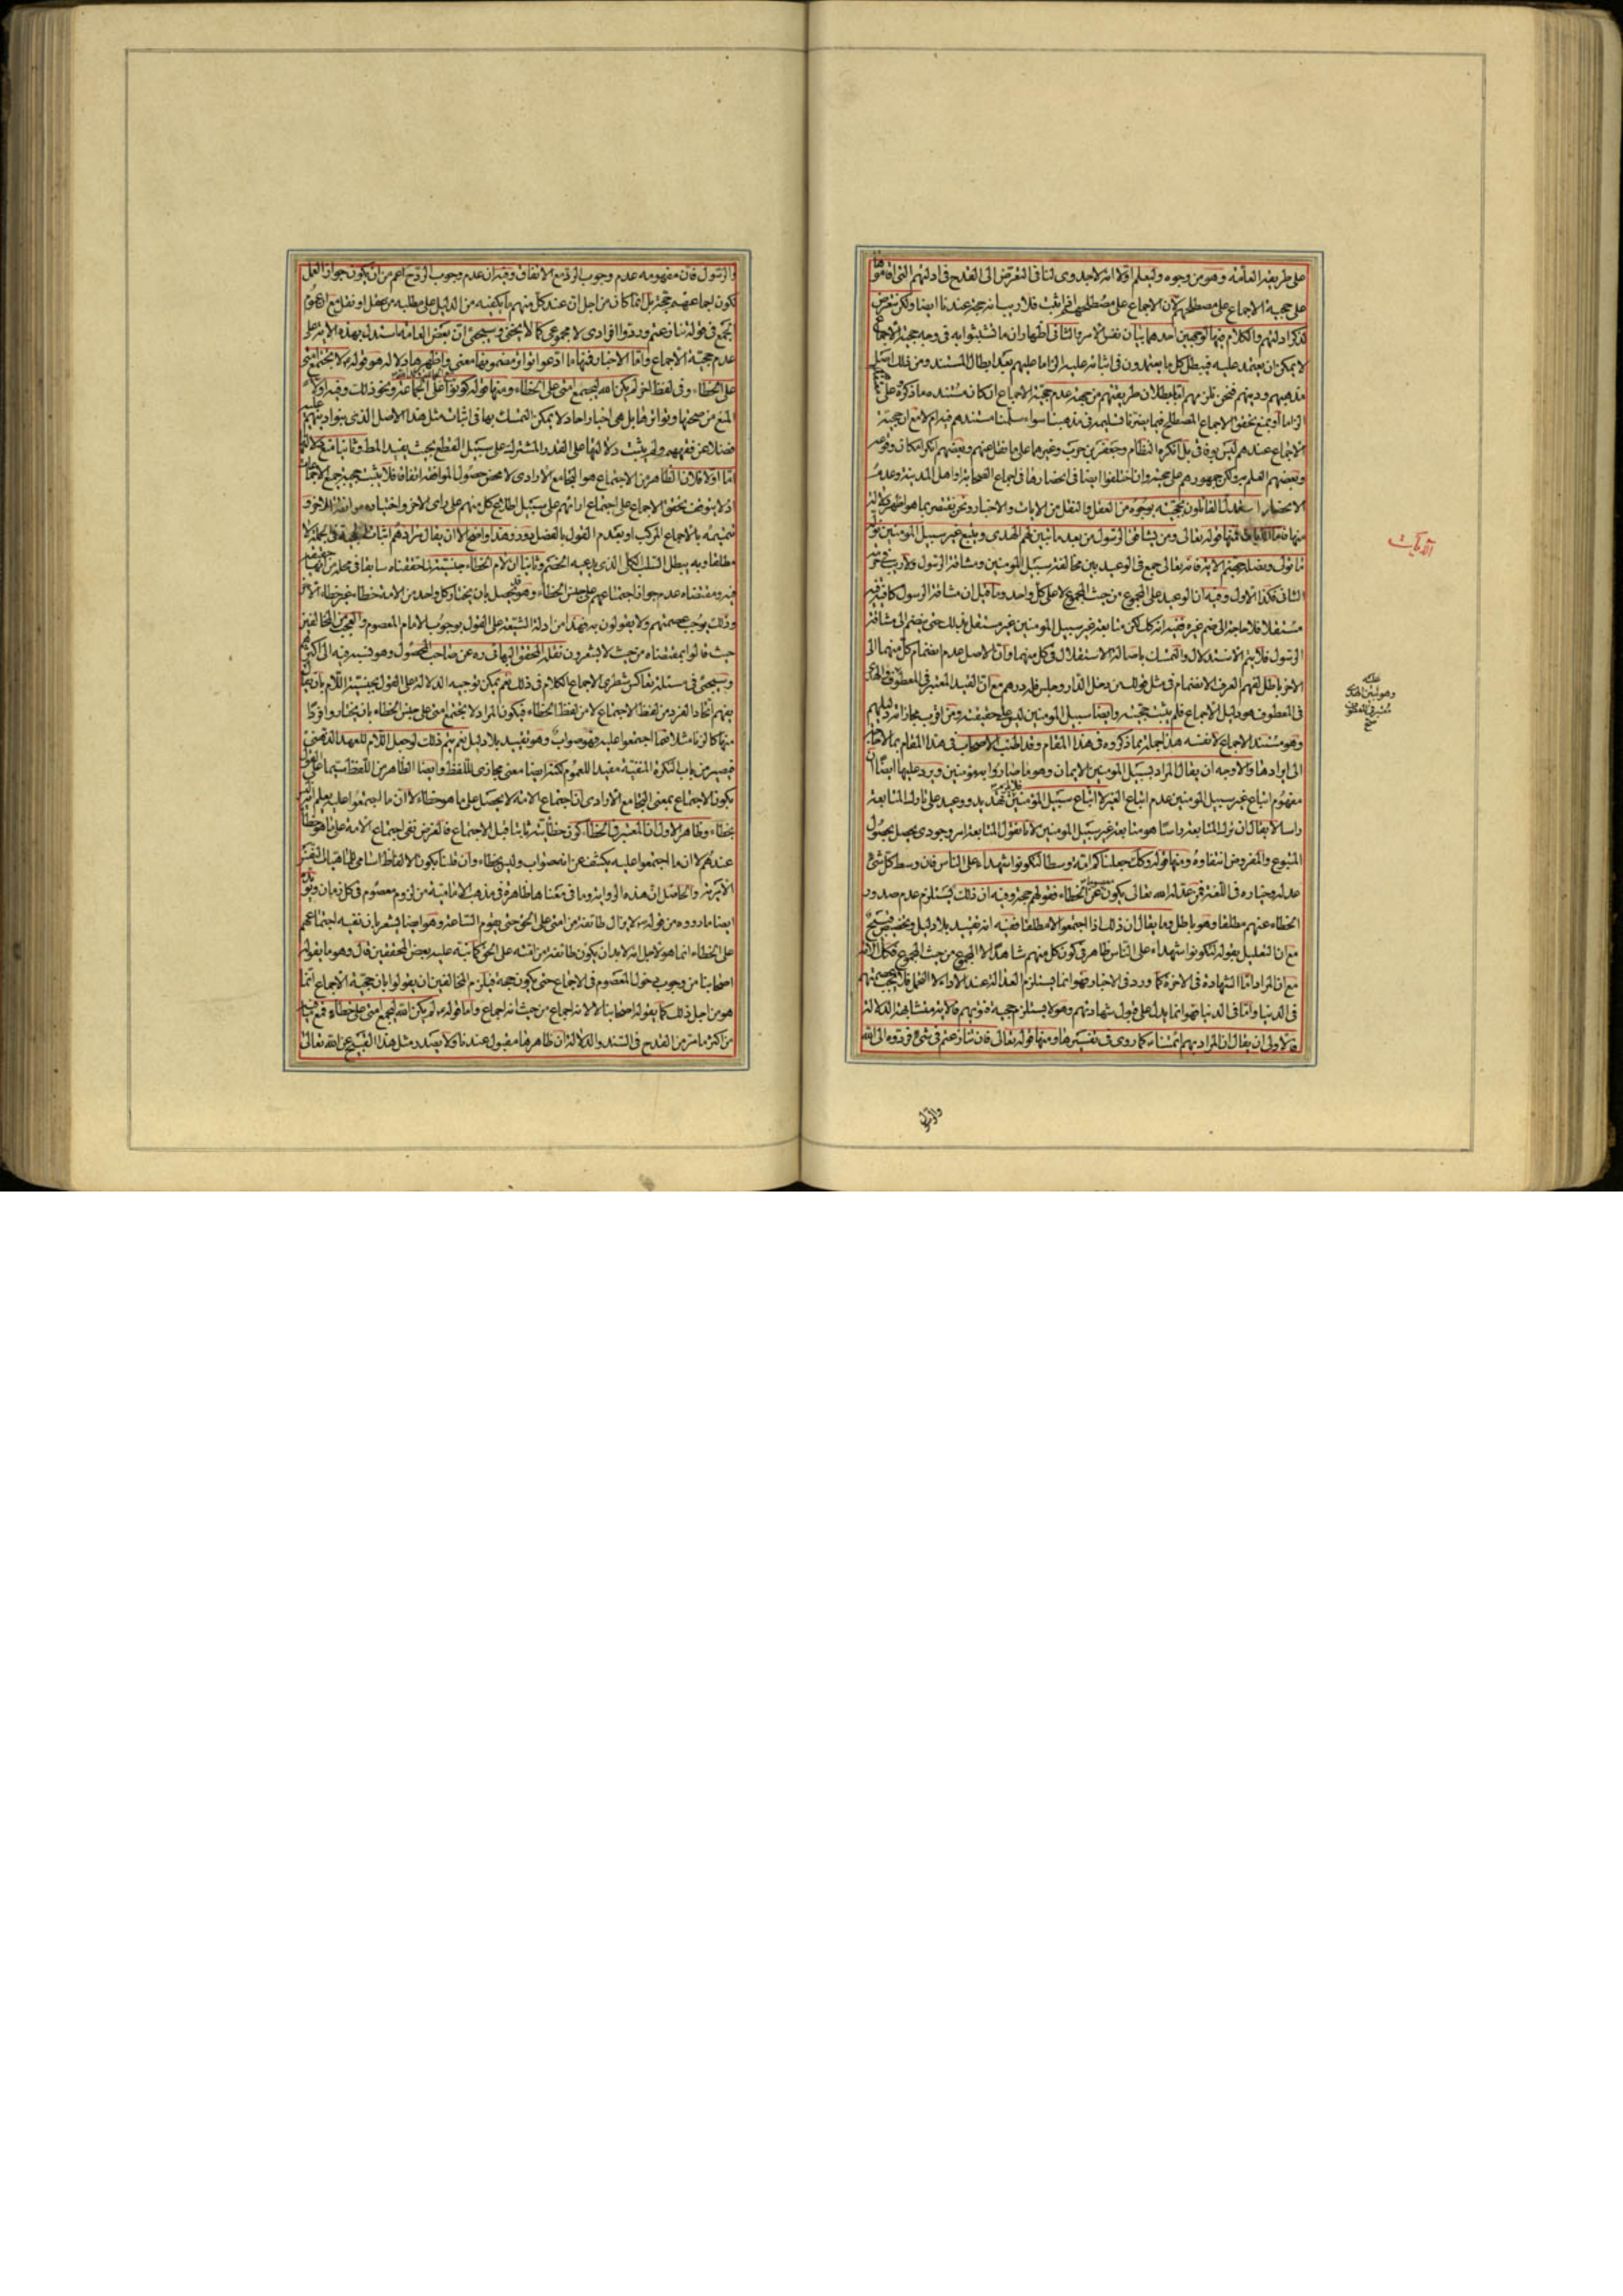 على طريقة العامة وهو من وجوه وليعلم اولا انه لا جدوى لنا فى التعرض الى القدح فى ادلتهم التى اقاموها
على حجية الاجماع على مصطلحهم لان الاجماع على مصطلحهم اذا ثبت فلا ريب انه حجة عندنا ايضا ولكن نتعرض
لذكر ادلتهم والكلام فيها لوجهين احدهما بيان نفس الامر والثانى اظهار ان ما تشبثوا به فى وجه حجية الاجماع
لا يمكن ان يعتمد عليه فيبطل كل ما يعتمدون فى اثباته عليه الزاما عليهم بعد ابطال المستند ومن ذلك اصل
مذهبهم ودينهم فنحن نلزمهم اما ببطلان طريقتهم من جهة عدم حجية الاجماع ان كان مستنده ما ذكره على
الزاما او بمنع تحقق الاجماع المصطلح فيما يضرنا تسليمه فى مذهبنا سواء سلمنا مستندهم فيه ام لا مع ان حجية
الاجماع عندهم ليس بوفاقى بل انكره النظام وجعفر بن حرب وغيرهما على ما نقل عنهم وبعضهم انكر امكان وقوعه
وبعضهم العلم به ولكن جمهورهم على حجيته وان اختلفوا ايضا فى انحصارها فى اجماع الصحابة او اهل المدينة وعدم
الانحصار استدل القائلون بحجيته بوجوه من العقل والنقل من الايات والاخبار ونحن نقتصر بما هو اظهر دلالة
منها فاما الايات فمنها قوله تعالى ومن يشاقق الرسول من بعد ما تبين لهم الهدى ويتبع غير سبيل المؤمنين نوله
ما تولى ونصله جهنم الاية فانه تعالى جمع فى الوعيد بين مخالفة سبيل المؤمنين ومشاقة الرسول ولا ريب فى حرمة
الثانى فكذا الاول وفيه ان الوعيد على المجموع من حيث المجموع لا على كل واحد وما قيل ان مشاقة الرسول كافية فيه
مستقلا فلا حاجة الى ضم غيره ففيه انه كك لكن متابعة غير سبيل المؤمنين غير مستقل بذلك حتى ينضم الى مشاقة
الرسول فلا يتم الاستدلال والتمسك باصالة الاستقلال فى كل منهما وان الاصل عدم انضمام كل منهما الى
الاخر باطل لفهم العرف الانضمام فى مثل قولك من دخل الدار وجلس فله درهم مع ان القيد المعتبر فى المعطوف عليه
فى المعطوف هو دليل الاجماع فلم يثبت حجيته وايضا سبيل المؤمنين ليس على حقيقته ومن اقرب مجازاته دليلهم
وهو مستند الاجماع لا نفسه هذا جملة مما ذكروه فى هذا المقام وقد اطنب الاصحاب فى هذا المقام بما لا حاجة
الى ايرادها والاوجه ان يقال المراد بسبيل المؤمنين الايمان وهو ما صاروا به مؤمنين ويرد عليها ايضا ان
مفهوم اتباع غير سبيل المؤمنين عدم اتباع الغير لا اتباع سبيل المؤمنين تهديد ووعيد على تارك المتابعة
راسا لا يقال ان ترك المتابعة راسا هو متابعة غير سبيل المؤمنين لانا نقول المتابعة امر وجودى يحصل بحصول
المتبوع والمفروض انتفاؤه ومنها قوله وكك جعلناكم امة وسطا لتكونوا شهداء على الناس فان وسط كل شئ
عدله وخياره فى اللغة فمن عدله الله تعالى يكون معصوما عن الخطاء فقولهم حجة وفيه ان ذلك يستلزم عدم صدور
الخطاء عنهم مطلقا وهو باطل وما يقال ان ذلك اذا اجتمعوا لا مطلقا ففيه انه تقييد بلا دليل وتخصيص قبيح
مع ان التعليل بقوله لتكونوا شهداء على الناس ظاهر فى كون كل منهم شاهدا لا المجموع من حيث المجموع فكك
مع ان المراد اما الشهادة فى الاخرة كما ورد فى الاخبار فهو انما يستلزم العدالة عند الاداء لا التحمل
فى الدنيا واما فى الدنيا فهو انما يدل على قبول شهادتهم وهو لا يستلزم حجية فتويهم فالاية متشابهة الدلالة
فالاولى ان يقال ان المراد بهم ائمتنا كما روى فى تفسيرها ومنها قوله تعالى فان تنازعتم فى شئ فردوه الى الله
الآيات
عليه
وهو تبين الهدى
معتبر فى المعطوف
صح
والرسول
والرسول فان مفهومه عدم وجوب الرد مع الاتفاق وفيه ان عدم وجوب الرد ح اعم من ان يكون جواز العمل
لكون اجماعهم حجة بل انما كان من اجل ان عند كل منهم ما يكفيه من الدليل على مطلبه من عقل او نقل مع ان
الجمع فى قوله تنازعتم وردوا افرادى لا مجموعى كما لا يخفى وسيجئ ان بعض العامة استدل بهذه الاية على
عدم حجية الاجماع واما الاخبار فمنها ما ادعوا تواتر مضمونها معنى واظهرها دلالة هو قوله لا يجتمع امتى
على الخطاء وفى لفظ اخر لم يكن الله ليجمع امتى على الخطاء ومنها قوله كونوا على الجماعة ونحو ذلك وفيه اولا
المنع من صحتها وتواترها بل هى اخبار احاد لا يمكن التمسك بها فى اثبات مثل هذا الاصل الذى بنوا دينهم عليه
فضلا عن فقههم ولم يثبت دلالتها على القدر المشترك على سبيل القطع بحيث يفيد المط وثانيا منع دلالتها
اما اولا فلان الظاهر من الاجتماع هو التجامع الارادى لا محض حصول الموافقة اتفاقا فلا يثبت حجية جميع الاجماعات
اذ لا يتوقف تحقق الاجماع على اجتماع ارائهم على سبيل اطلاع كل منهم على راى الاخر واختياره موافقة للاخر
تتميمه بالاجماع المركب او بعدم القول بالفصل يورد وهذا واضح الا ان يقال مرادهم اثبات الحجية فى الجملة لا
مطلقا وبه يبطل السلب الكلى الذى يدعيه الخصم وثانيا ان لام الخطاء جنسية لما حققناه سابقا فى محله من انها حقيقة
فيه ومقتضاه عدم جواز اجتماعهم على جنس الخطاء وهو قد يحصل بان يختار كل واحد من الامة خطاء غير خطاء الاخر
وذلك يوجب عصمتهم ولا يقولون به فهذا من ادلة الشيعة على القول بوجوب الامام المعصوم والعجب من المخالفين
حيث قالوا بمقتضاه من حيث لا يشعرون نقله المحقق البهائى ره عن صاحب المحصول وهو نسبه فيه الى اكثرهم
وسيجئ فى مسئلة تعاكس شطرى الاجماع الكلام فى ذلك نعم يمكن توجيه الدلالة على القول بجنسية اللام بان يقال
يفهم اتحاد الفرد من لفظ الاجتماع لا من لفظ الخطاء فيكون المراد لا يجتمع امتى على جنس الخطاء بان يختاروا فردا
منها كالزنا مثلا فما اجتمعوا عليه فهو صواب وهو تقييد بلا دليل نعم يتم ذلك لو جعل اللام للعهد الذهنى
فيصير من باب النكرة المنفية مفيدا للعموم لكنه ايضا معنى مجازى للفظ وايضا الظاهر من اللفظ سيما على القول
بكون الاجتماع بمعنى التجامع الارادى ان اجتماع الامة لا يحصل على ما هو خطاء لا ان ما اجتمعوا عليه يعلم انه ليس
بخطاء وظاهر الاول ان المعتبر فى الخطاء كون خطائيته ثابتا قبل الاجتماع فالغرض نفى اجتماع الامة على ما هو خطاء
عندهم لا ان ما اجتمعوا عليه يكشف عن انه صواب وليس بخطاء وان قلنا بكون الالفاظ اسامى للماهيات النفس
الامرية والحاصل ان هذه الرواية وما فى معناها ظاهرة فى مذهب الامامية من لزوم معصوم فى كل زمان ويؤيده
ايضا ما رووه من قوله لا يزال طائفة من امتى على الحق حتى يقوم الساعة وهو ايضا يشعر بان نفيه اجتماعهم
على الخطاء انما هو لاجل انه لا بد ان يكون طائفة من امته على الحق كما نبه عليه بعض المحققين قال وهو ما يقوله
اصحابنا من وجوب دخول المعصوم فى الاجماع حتى يكون حجة فيلزم المخالفين ان يقولوا بان حجية الاجماع انما
هو من اجل ذلك كما يقوله اصحابنا لا لانه اجماع من حيث انه اجماع واما قوله لم يكن الله ليجمع امتى على خطاء فمع
من اكثر ما مر من القدح فى السند والدلالة ان ظاهرها مقبول عندنا ولا يصدر مثل هذا القبيح عن الله تعالى